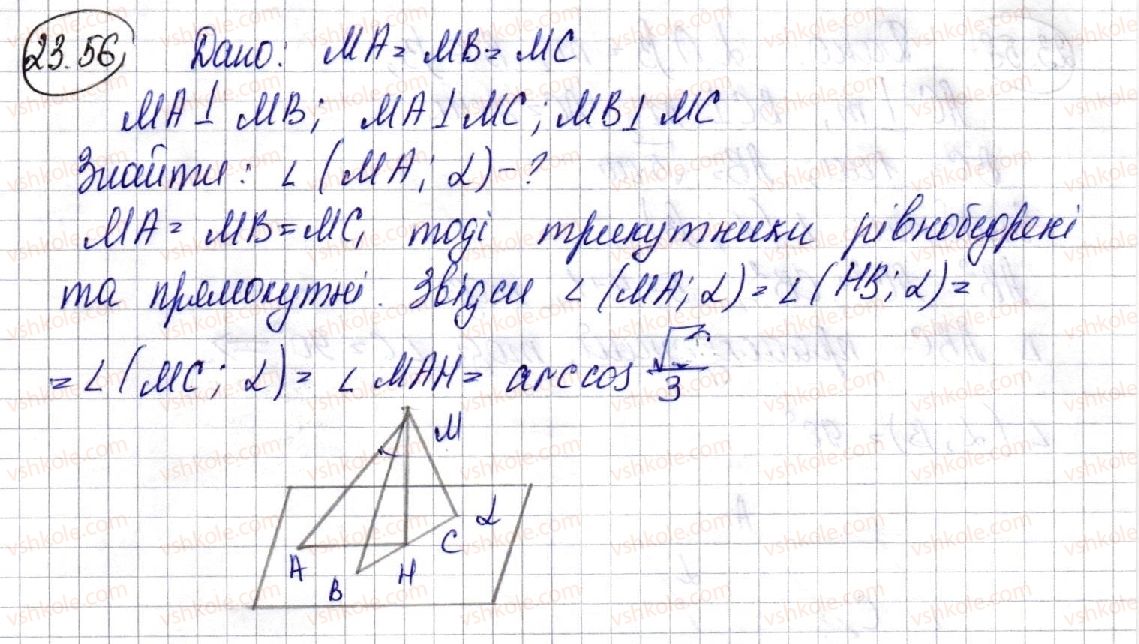 23.56. Дано: MA = MB = MC
MA ⊥ MB; MA ⊥ MC; MB ⊥ MC
Знайти: ∠(MA; α) - ?
MA = MB = MC, тоді трикутники рівнобедрені
та прямокутні. Звідси ∠(MA; α) = ∠(HB; α) =
= ∠(MC; α) = ∠MAH = arccos √ /3
M
α
C
A
H
B